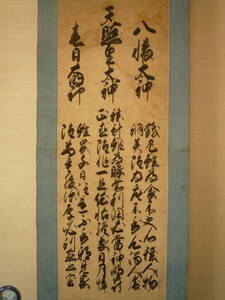 八幡大神
鐵丸雖為食不受心穢人物
銅焔雖為座不到心濁人處
天照皇大神
謀計雖為眼前利潤必當神明罰
正直雖非一旦依怙終蒙日月憐
春日大明神
雖曳千日注連不到邪見家
雖為重服深厚必到慈悲室